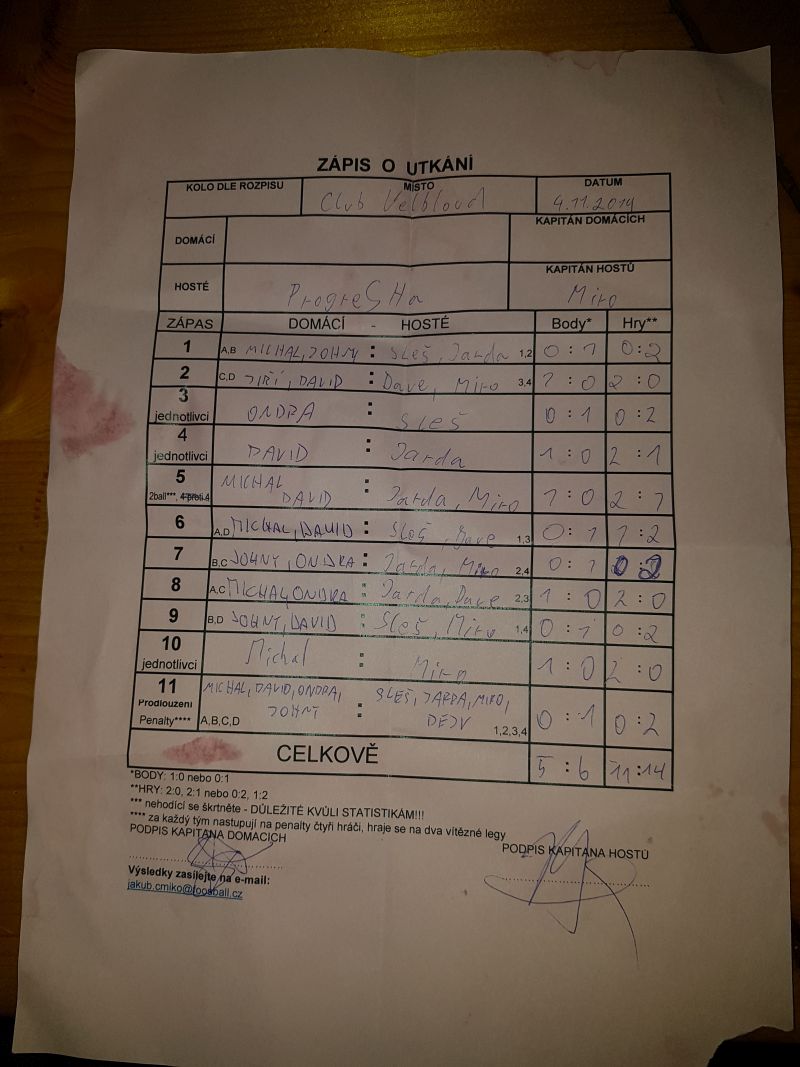 ZÁPIS O UTKÁNÍ
KOLO DLE ROZPISU MÍSTO DATUM
Club Velbloud 4.11.2019
DOMÁCÍ KAPITÁN DOMÁCÍCH
HOSTÉ KAPITÁN HOSTŮ
ProgreSHa Miro
ZÁPAS DOMÁCÍ - HOSTÉ Body* Hry**
1 A,B MICHAL, JOHNY : Sleš, Jarda 1,2 0 : 1 0 : 2
2 C,D JIŘÍ, DAVID : Dave, Miro 3,4 1 : 0 2 : 0
3 jednotlivci ONDRA : Sleš 0 : 1 0 : 2
4 jednotlivci DAVID : Jarda 1 : 0 2 : 1
5 MICHAL
2ball***, 4 proti 4 DAVID Jarda, Miro 1 : 0 2 : 1
6 A,D MICHAL, DAVID : Sleš, Dave 1,3 0 : 1 1 : 2
7 B,C JOHNY, ONDRA : Jarda, Miro 2,4 0 : 1 0 : 2
8 A,C MICHAL, ONDRA : Jarda, Dave 2,3 1 : 0 2 : 0
9 B,D JOHNY, DAVID : Sleš, Miro 1,4 0 : 1 0 : 2
10 jednotlivci Michal : Miro 1 : 0 2 : 0
11 MICHAL, DAVID, ONDRA, SLEŠ, JARDA, MIRO,
Prodloužení JOHNY : DEJV 0 : 1 0 : 2
Penalty**** A,B,C,D 1,2,3,4
CELKOVĚ 5 : 6 11 : 14
*BODY: 1:0 nebo 0:1
**HRY: 2:0, 2:1 nebo 0:2, 1:2
*** nehodící se škrtněte - DŮLEŽITÉ KVŮLI STATISTIKÁM!!!
**** za každý tým nastupují na penalty čtyři hráči, hraje se na dva vítězné legy
PODPIS KAPITÁNA DOMÁCÍCH PODPIS KAPITÁNA HOSTŮ
Výsledky zasílejte na e-mail:
jakub.cmiko@foosball.cz